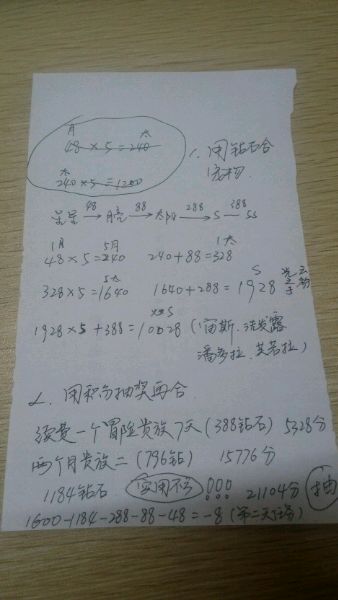 月 太
48×5=240
太
240×5=1200
1、用钻石合
宠物
星星 48→ 月亮 88→ 太阳 288→ S 388→ SS
1月 5月 1太
48×5=240 240+88=328
5太 S
328×5=1640 1640+288=1928
1928×5+388=10028 (宙斯、
潘多拉、
2、用积分抽奖再合
续费一个冒险贵族7天(388钻石) 5328分
两个月贵族二(796钻) 15776分
1184钻石 实用不亏!!! 21104分 抽
1600-1184-288-88-48=-8 (第二天任务)